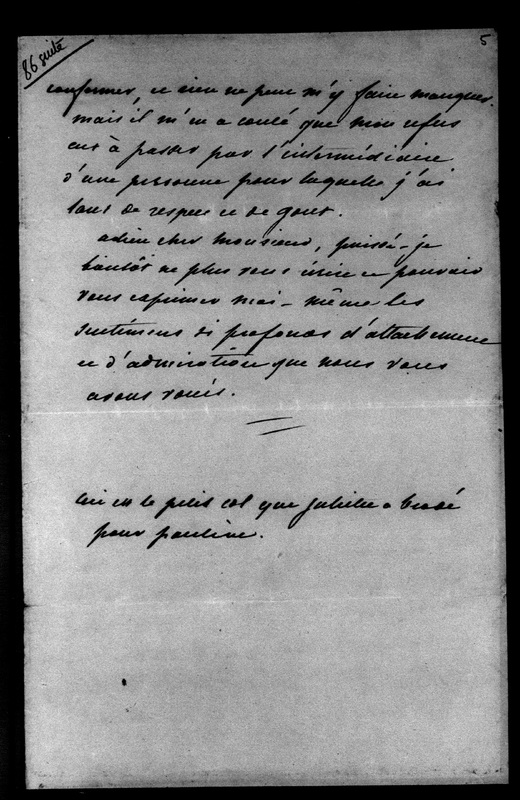 86 suite
5
conformer, et rien ne peut m'y faire manquer.
mais il m'en a couté que mon refus
eut à passer par l'intermédiaire
d'une personne pour laquelle j'ai
tant de respect et de gout.
adieu cher monsieur, puissé-je
bientôt ne plus vous écrire et pouvoir
vous exprimer moi-même les
sentimens si profonds d'attachement
et d'admiration que nous vous
avons voués.
ci est le petit col que Juliette a brodé
pour pauline.